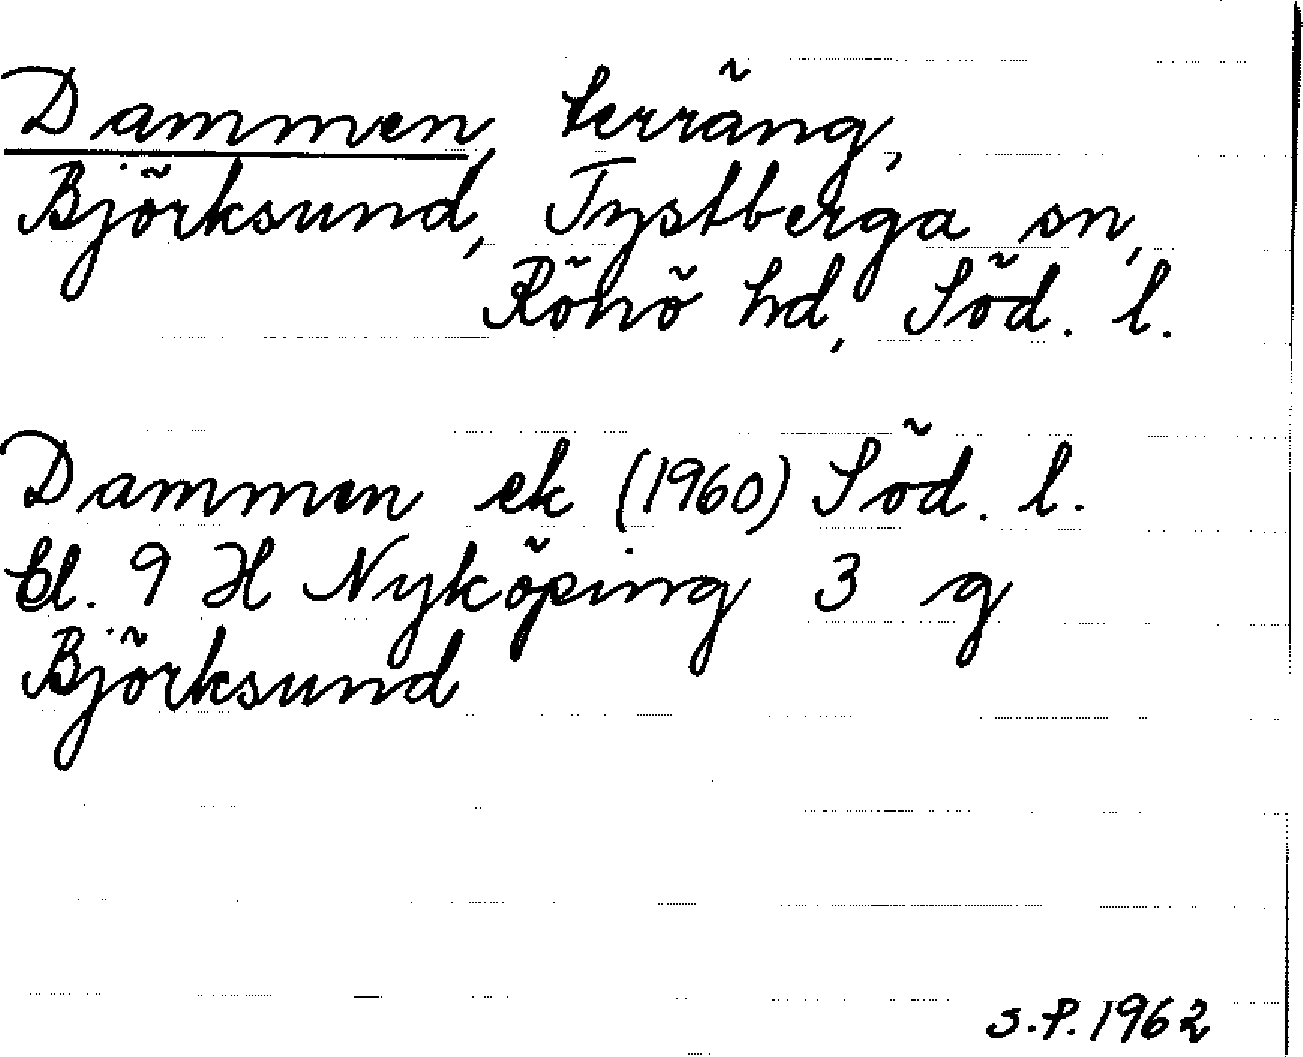 Dammen, terräng,
Björksund, Tystberga sn,
Rönö hd, Söd. l.
Dammen ek (1960) Söd. l.
bl. 9 H Nyköping 3 g
Björksund
S.P. 1962